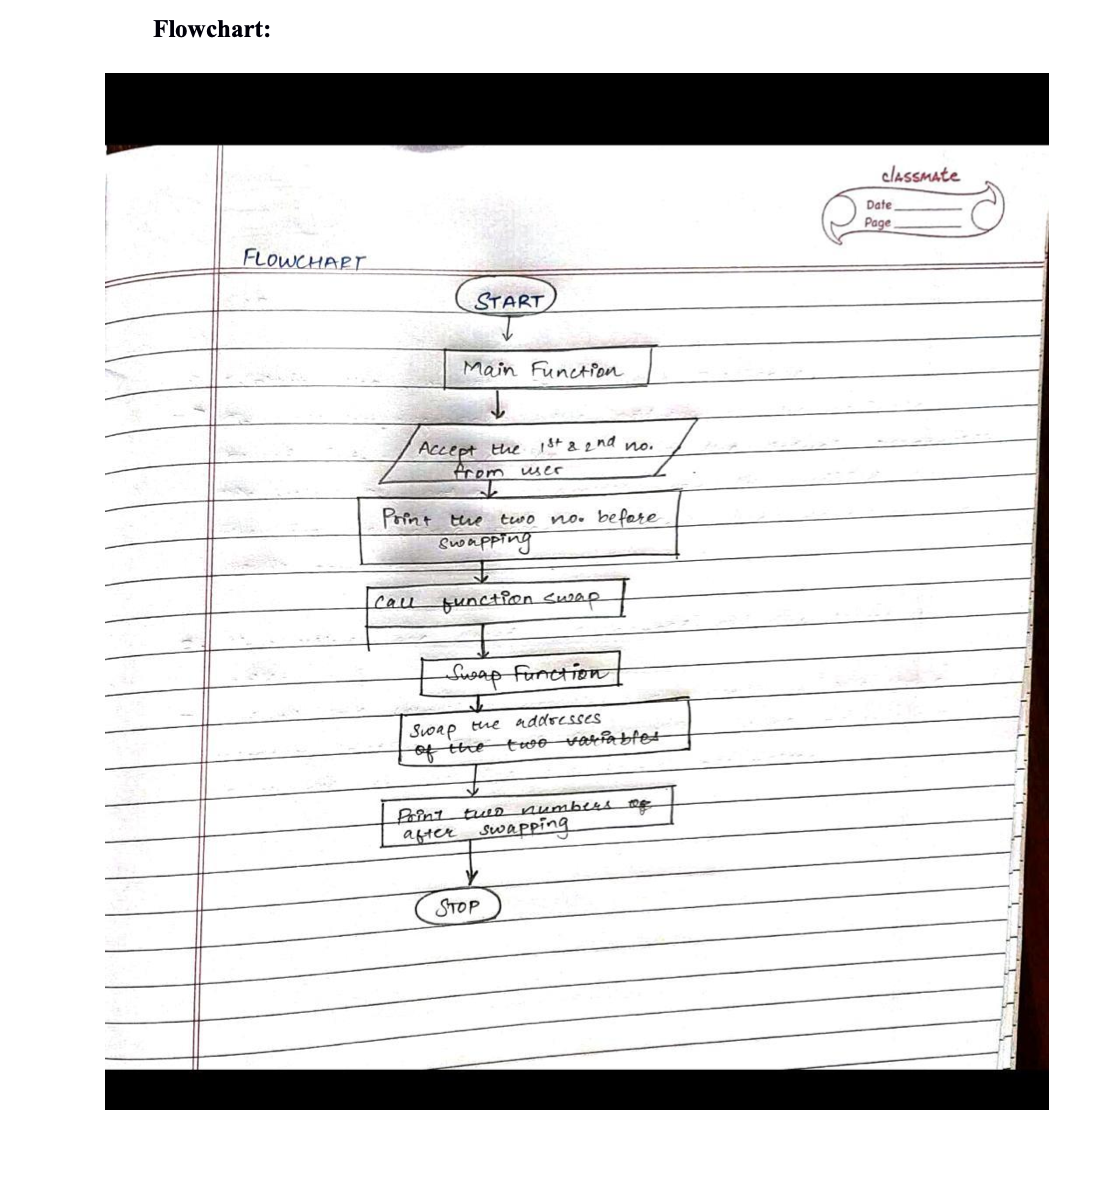 Flowchart:
classmate
Date
Page
FLOWCHART
START
Main Function
Accept the 1st & 2nd no.
from user
Print the two no. before
swapping
Call function swap
Swap Function
Swap the addresses
of the two variables
Print two numbers
after swapping
STOP